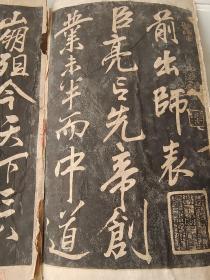 前出師表
臣亮言先帝創
業未半而中道
崩殂今天下三